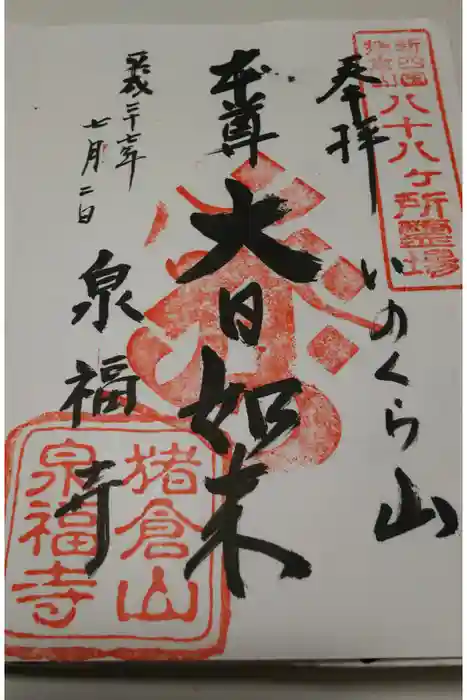 新四国
猪倉山
八十八ヶ所霊場
奉拝
いのくら山
本尊
大日如来
平成二十七年
七月二日
泉福寺
猪倉山
泉福寺